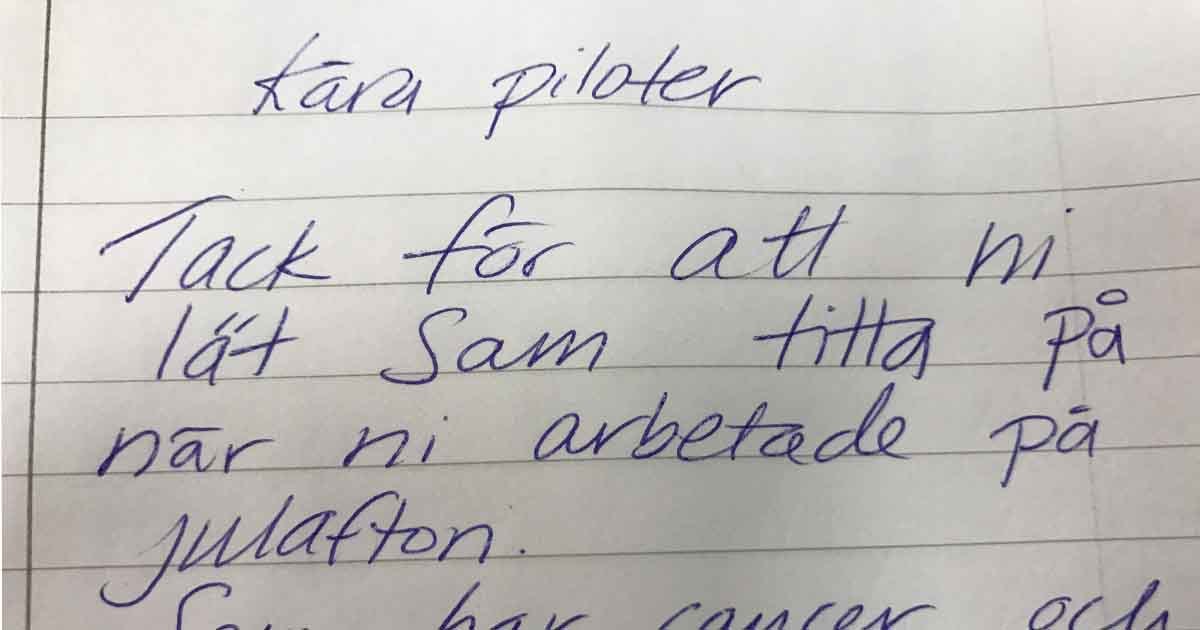 Kära piloter
Tack för att ni
lät Sam titta på
när ni arbetade på
julafton.
Sam har cancer och